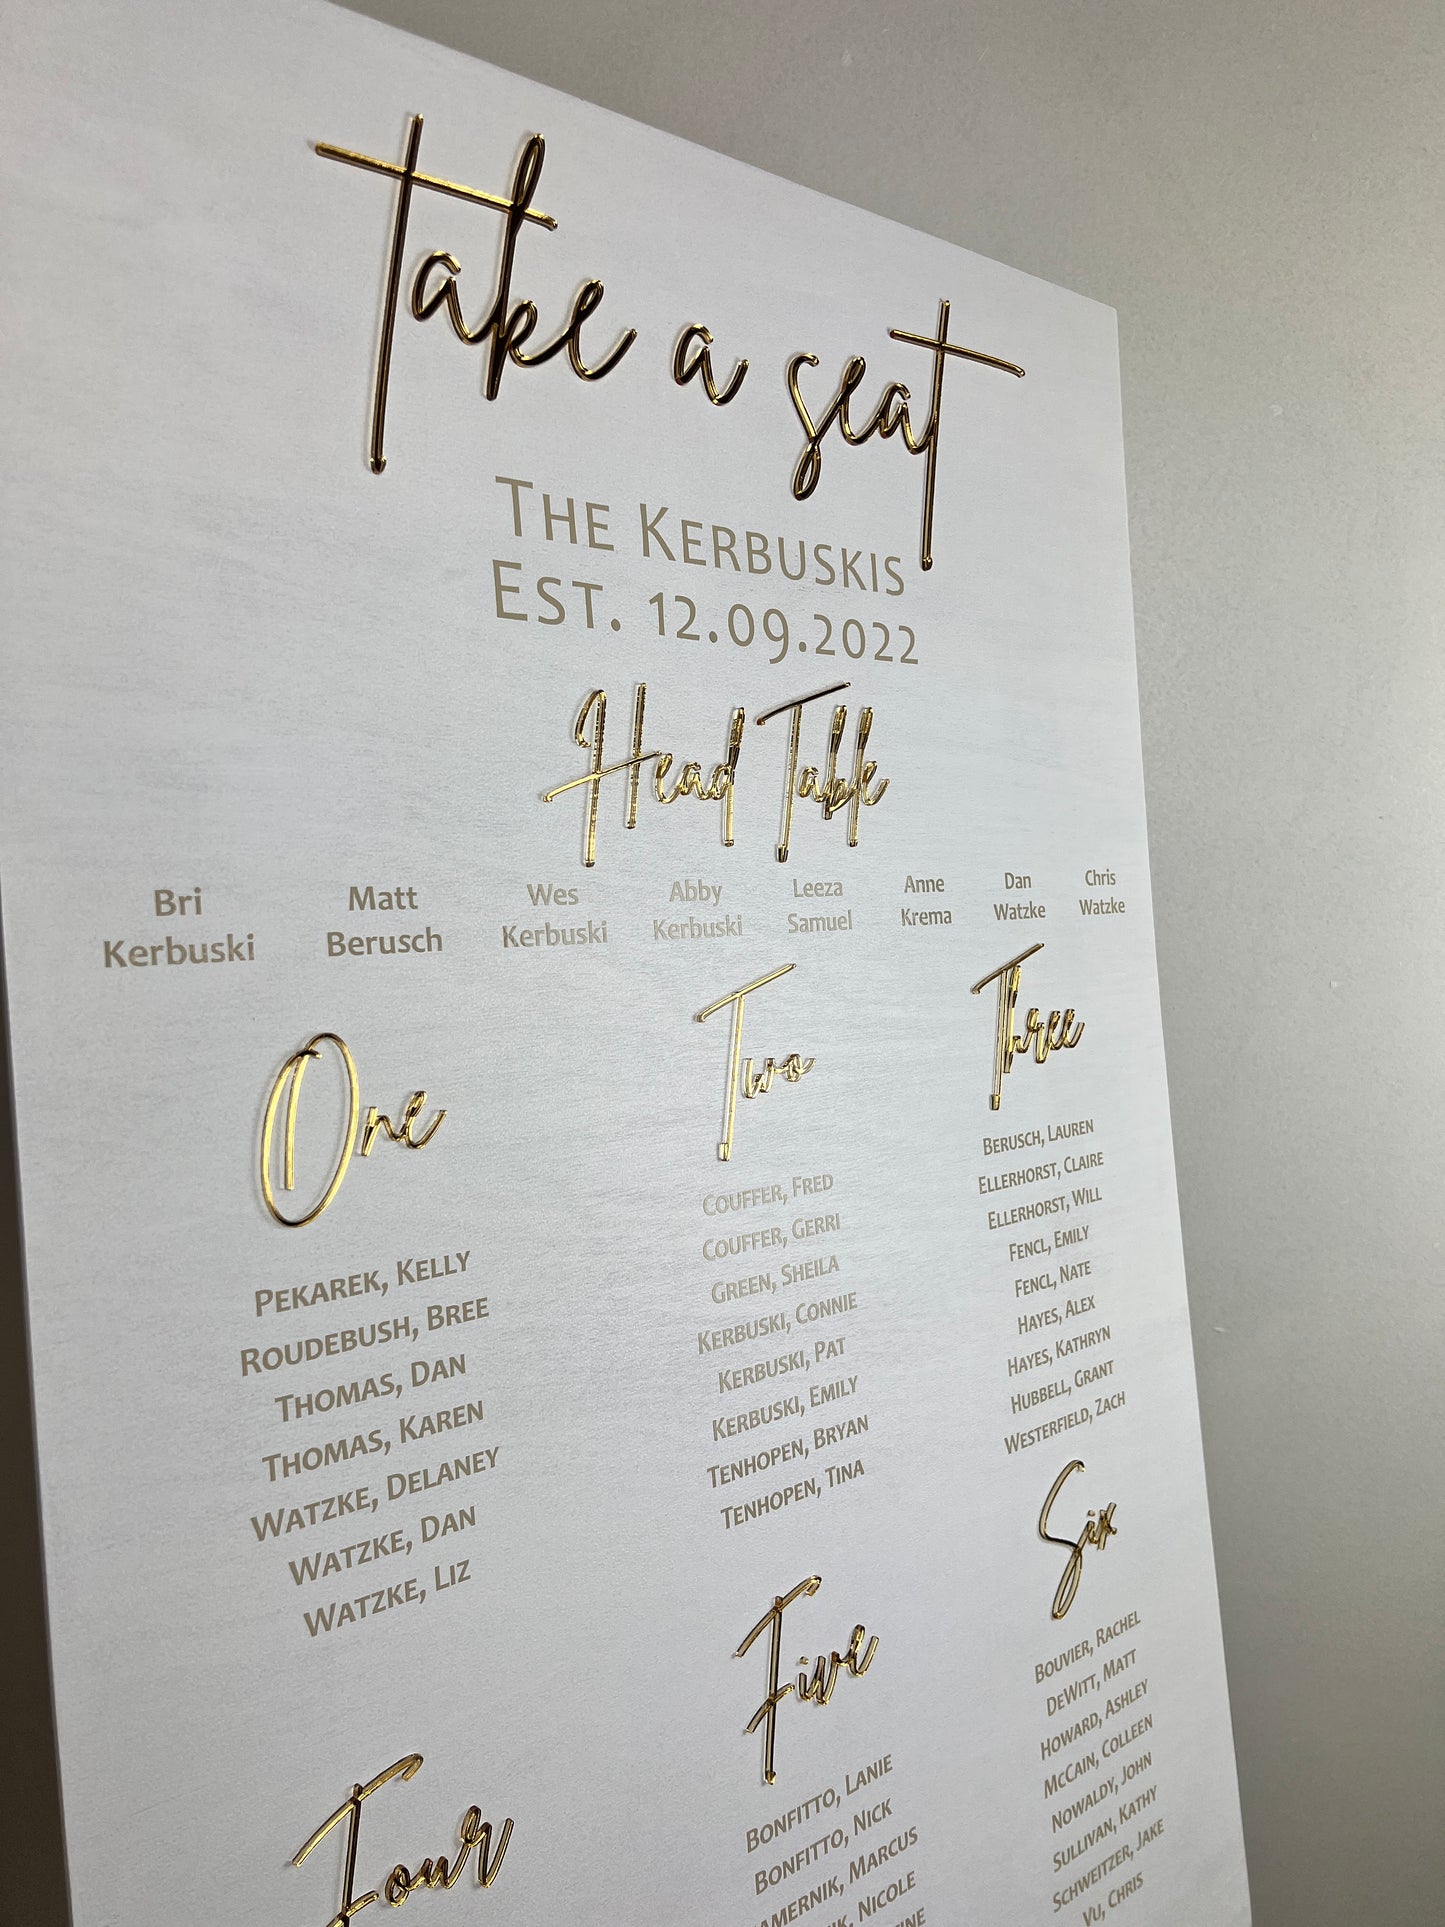 Take a seat
The Kerbuskis
Est. 12.09.2022
Head Table
Bri Kerbuski
Matt Berusch
Wes Kerbuski
Abby Kerbuski
Leeza Samuel
Anne Krema
Dan Watzke
Chris Watzke
One
Pekarek, Kelly
Roudebush, Bree
Thomas, Dan
Thomas, Karen
Watzke, Delaney
Watzke, Dan
Watzke, Liz
Two
Couffer, Fred
Couffer, Gerri
Green, Sheila
Kerbuski, Connie
Kerbuski, Pat
Kerbuski, Emily
Tenhopen, Bryan
Tenhopen, Tina
Three
Berusch, Lauren
Ellerhorst, Claire
Ellerhorst, Will
Fencl, Emily
Fencl, Nate
Hayes, Alex
Hayes, Kathryn
Hubbell, Grant
Westerfield, Zach
Four
Five
Bonfitto, Lanie
Bonfitto, Nick
Marcus
Nicole
Six
Bouvier, Rachel
DeWitt, Matt
Howard, Ashley
McCain, Colleen
Nowaldy, John
Sullivan, Kathy
Schweitzer, Jake
Vu, Chris